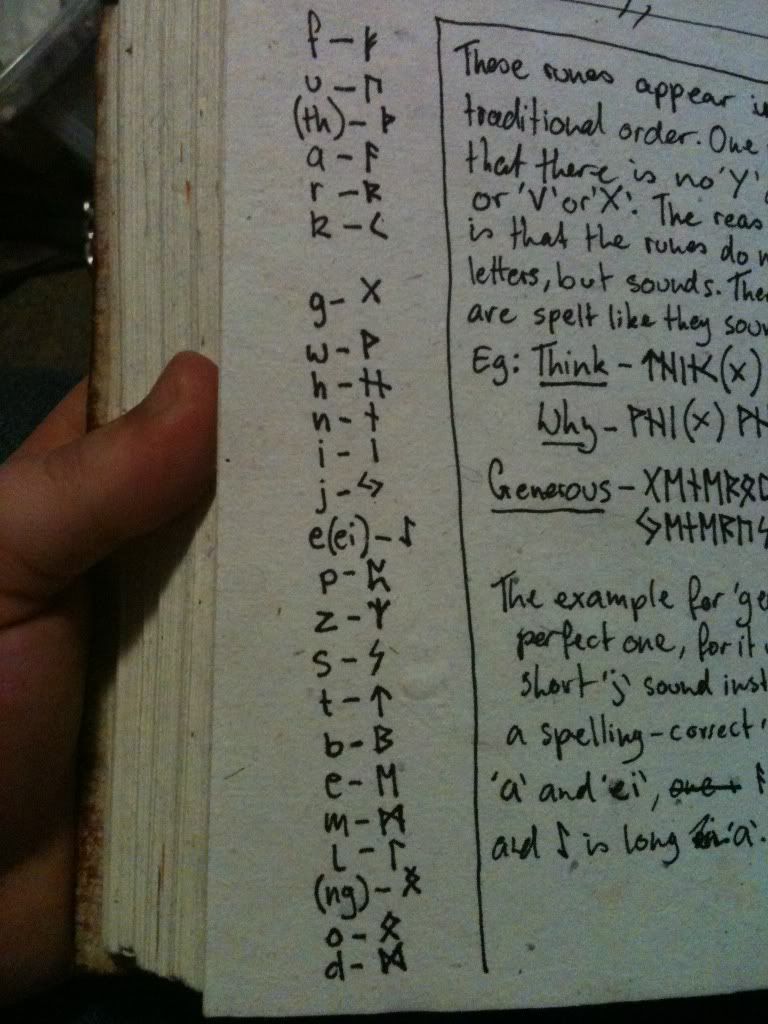 f - ᚠ
u - ᚢ
(th) - ᚦ
a - ᚨ
r - ᚱ
k - ᚲ
g - ᚷ
w - ᚹ
h - ᚺ
n - ᚾ
i - ᛁ
j - ᛃ
e(ei) - ᛇ
p - ᛈ
z - ᛉ
s - ᛋ
t - ᛏ
b - ᛒ
e - ᛖ
m - ᛗ
l - ᛚ
(ng) - ᛝ
o - ᛟ
d - ᛞ
These runes appear in
traditional order. One
that there is no 'Y',
or 'V' or 'X'. The
is that the runes do
letters, but sounds.
are spelt like they
Eg: Think - (x)
Why - ᚹᚺᛁ (x)
Generous -
The example for
perfect one, for it
short 'j' sound
a spelling-correct
'a' and 'ei',
and ᛇ is long 'a'.